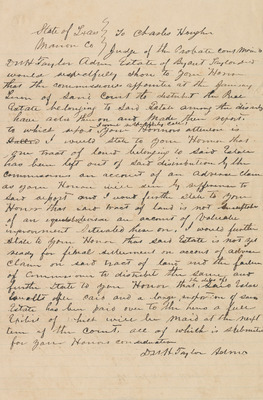 State of Texas } To Charles Haughn
Marion Co } Judge of the Probate Court Marion Co
D W H Taylor Admr Estate of Bryant Taylor decd
would respectfully show to your Honor
that the commissioners appointed at the
Term of said Court to distribut the Real
Estate belonging to said Estate among the
have and made their report
to which report your Honors attention is
I would state to your Honor that
one tract of land belonging to said Estate
has been left out of said distribution by the
Commissioners on account of an adverse claim
as your Honor will see by refference to
said report and I would further state to your
Honor that said tract of land is not
of an equal division on account of valuable
improvement situated thear on. I would further
state to your Honor that said Estate is not yet
ready for final settlement on account of adverse
claim on said tract of land and the failure
of Commissioners to distribut the same and
further state to your Honor that the debts said Estate
is all paid and a large proportion of said
Estate has been paid over to the heirs a full
Exibit of which will be maid at the next
term of the Court. all of which is submited
for your Honors consideration
D W H Taylor Admr